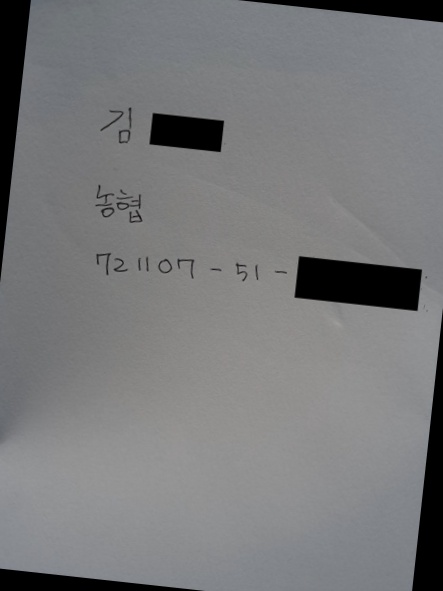 김
농협
721107-51-